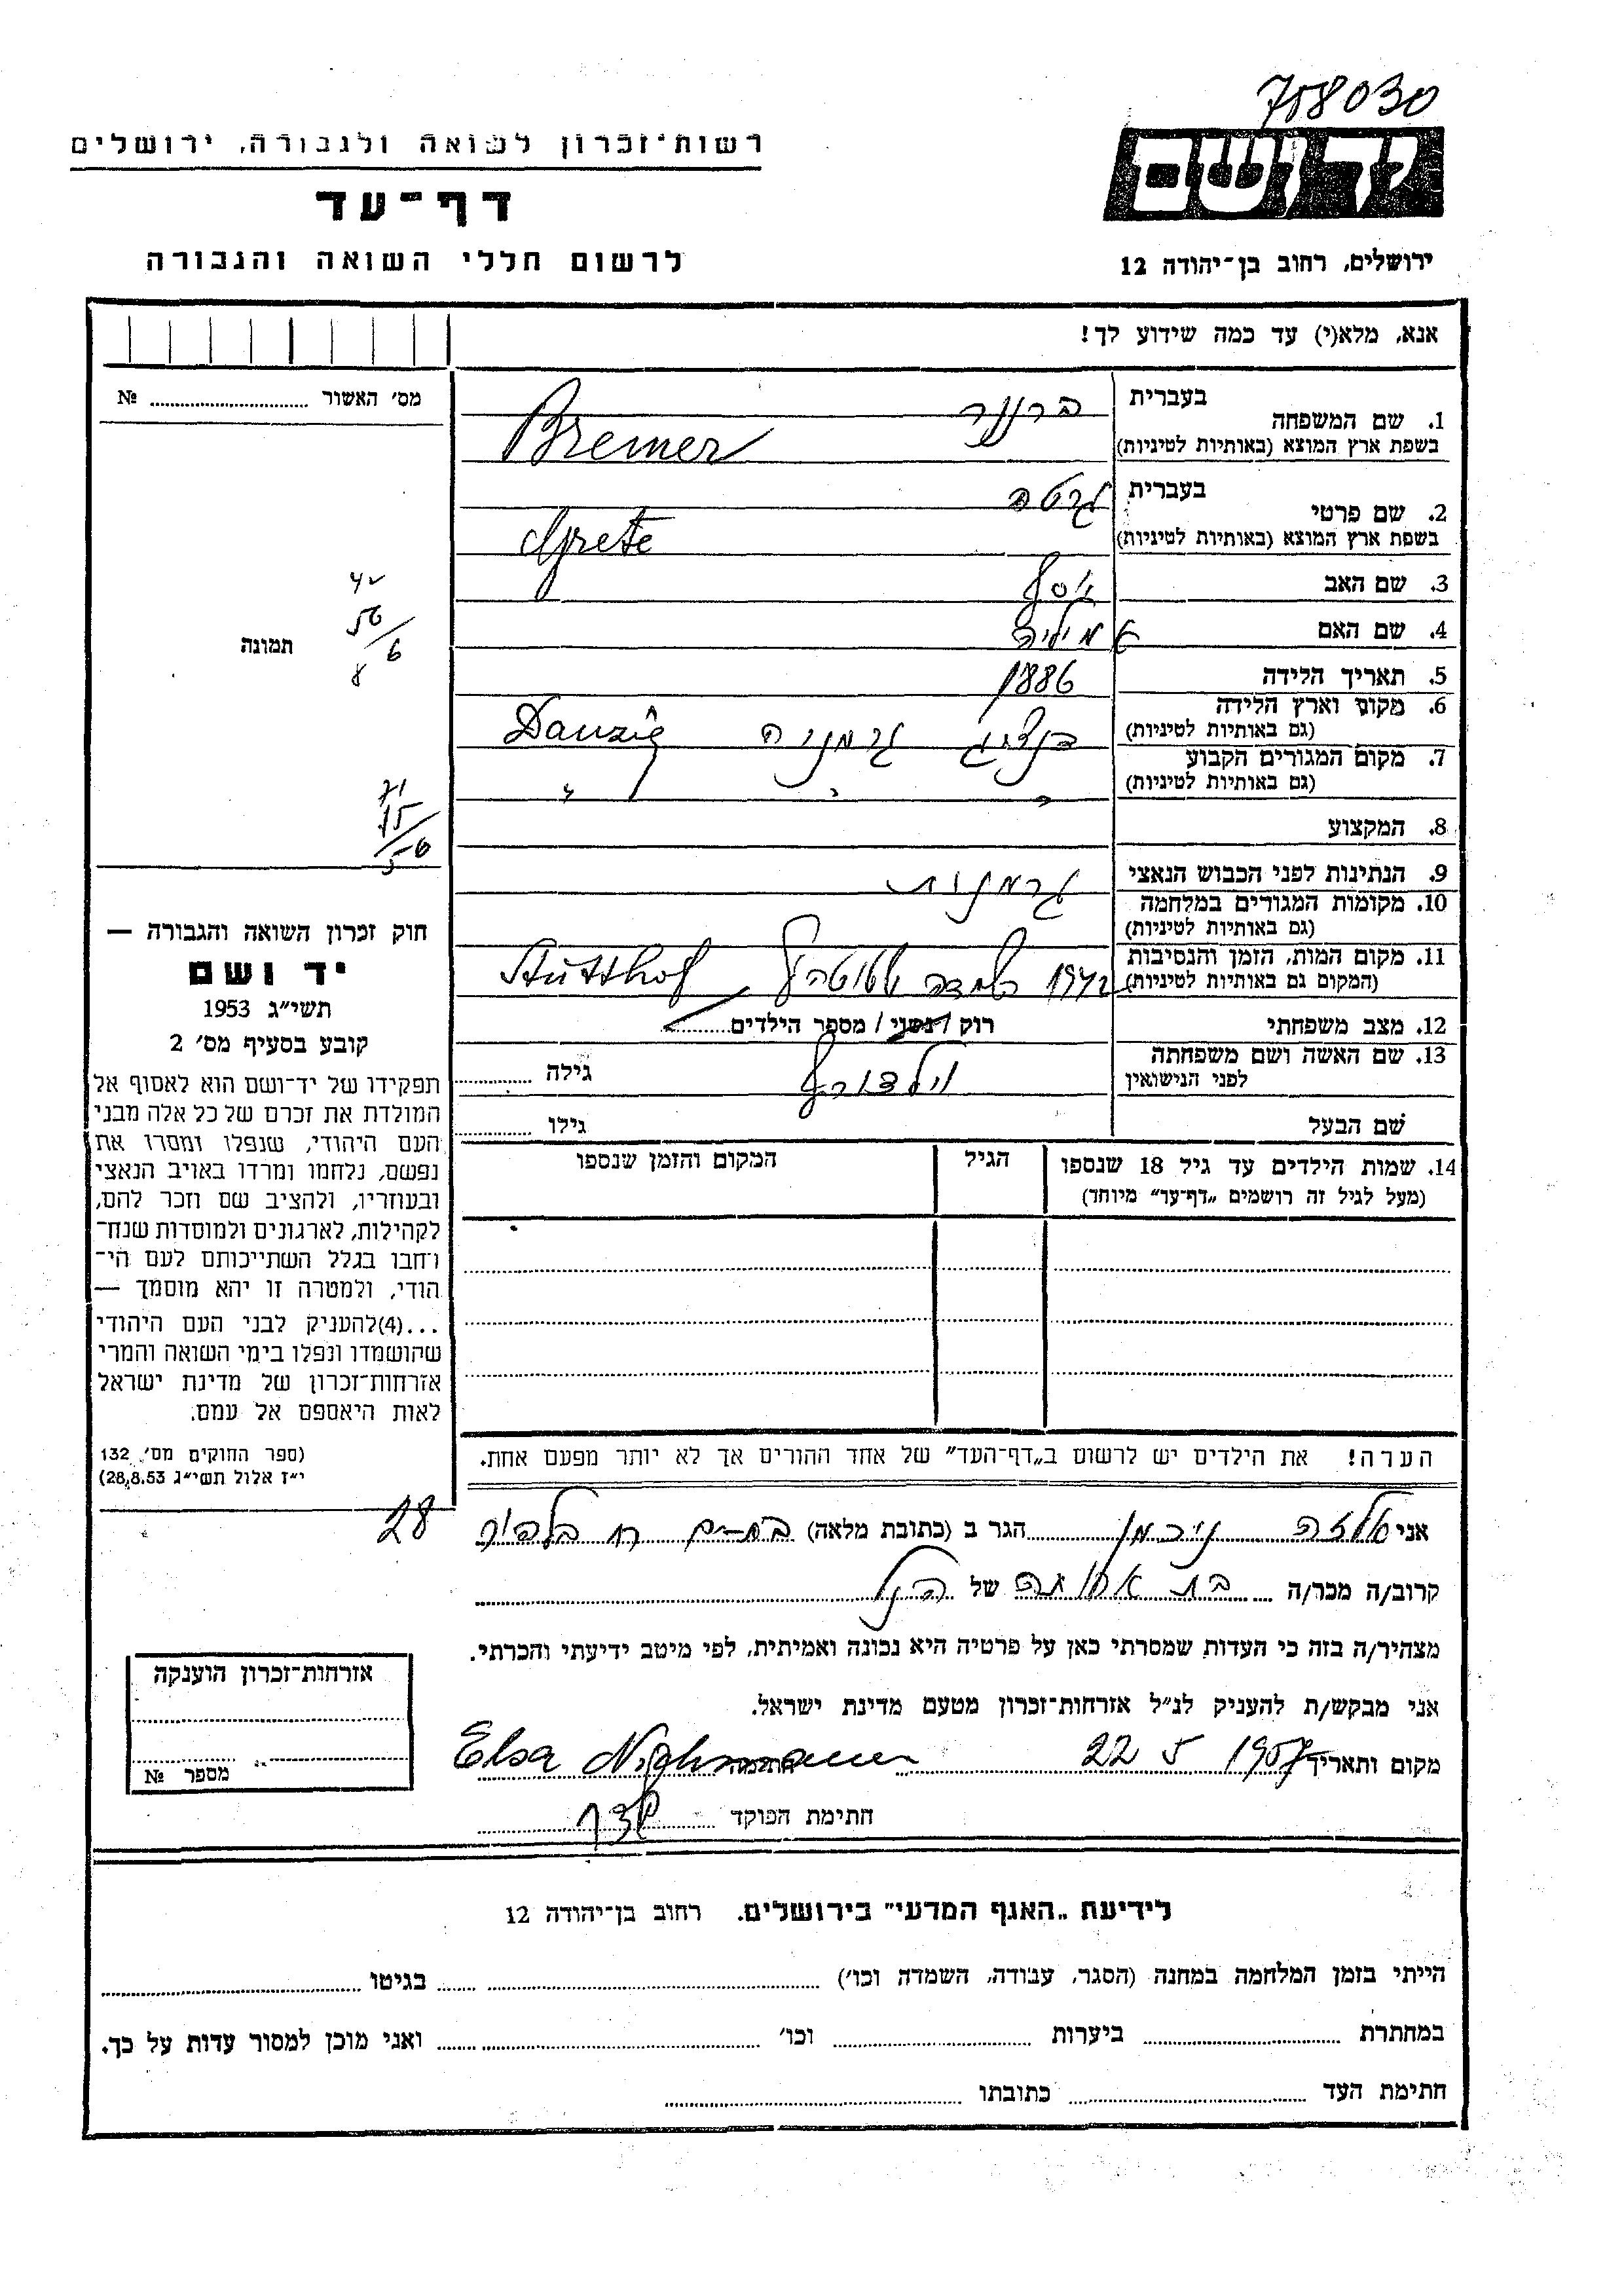 758030
יד ושם
רשות־זכרון לשואה ולגבורה, ירושלים
דף־עד
לרשום חללי השואה והגבורה
ירושלים, רחוב בן־יהודה 12
אנא, מלא(י) עד כמה שידוע לך!
מס׳ האשור ........ №
1. שם המשפחה
בעברית ברמר
בשפת ארץ המוצא (באותיות לטיניות) Bremer
2. שם פרטי
בעברית גרטה
בשפת ארץ המוצא (באותיות לטיניות) Grete
3. שם האב יוסף
4. שם האם אמיליה
5. תאריך הלידה 1886
6. מקום וארץ הלידה
(גם באותיות לטיניות) דנציג גרמניה Danzig
7. מקום המגורים הקבוע
(גם באותיות לטיניות) " " "
8. המקצוע
9. הנתינות לפני הכבוש הנאצי גרמנית
10. מקומות המגורים במלחמה
(גם באותיות לטיניות)
11. מקום המות, הזמן והנסיבות
(המקום גם באותיות לטיניות) 1942 שטוטהוף Stutthof
12. מצב משפחתי רוק / נשוי / מספר הילדים........
13. שם האשה ושם משפחתה
לפני הנישואין וילדורף גילה ........
שם הבעל גילו ........
14. שמות הילדים עד גיל 18 שנספו
(מעל לגיל זה רושמים „דף־עד״ מיוחד)
הגיל
המקום והזמן שנספו
הערה! את הילדים יש לרשום ב„דף־העד״ של אחד ההורים אך לא יותר מפעם אחת.
תמונה
חוק זכרון השואה והגבורה —
יד ושם
תשי״ג 1953
קובע בסעיף מס׳ 2
תפקידו של יד־ושם הוא לאסוף אל
המולדת את זכרם של כל אלה מבני
העם היהודי, שנפלו ומסרו את
נפשם, נלחמו ומרדו באויב הנאצי
ובעוזריו, ולהציב שם וזכר להם,
לקהילות, לארגונים ולמוסדות שנח־
רבו בגלל השתייכותם לעם הי־
הודי, ולמטרה זו יהא מוסמך —
...(4)להעניק לבני העם היהודי
שהושמדו ונפלו בימי השואה והמרי
אזרחות־זכרון של מדינת ישראל
לאות היאספם אל עמם.
(ספר החוקים מס׳ 132,
י״ז אלול תשי״ג 28.8.53)
אני אלזה ניכמן הגר ב (כתובת מלאה) בת־ים רח בלפור 28
קרוב/ה מכר/ה בת אחותה של הנ״ל
מצהיר/ה בזה כי העדות שמסרתי כאן על פרטיה היא נכונה ואמיתית, לפי מיטב ידיעתי והכרתי.
אני מבקש/ת להעניק לנ״ל אזרחות־זכרון מטעם מדינת ישראל.
מקום ותאריך 22 5 1957 חתימה Elsa Nichmann
חתימת הפוקד
אזרחות־זכרון הוענקה
מספר №
לידיעת „האגף המדעי״ בירושלים. רחוב בן־יהודה 12
הייתי בזמן המלחמה במחנה (הסגר, עבודה, השמדה וכו׳) ........ בגיטו ........
במחתרת ........ ביערות ........ וכו׳ ........ ואני מוכן למסור עדות על כך.
חתימת העד ........ כתובתו ........